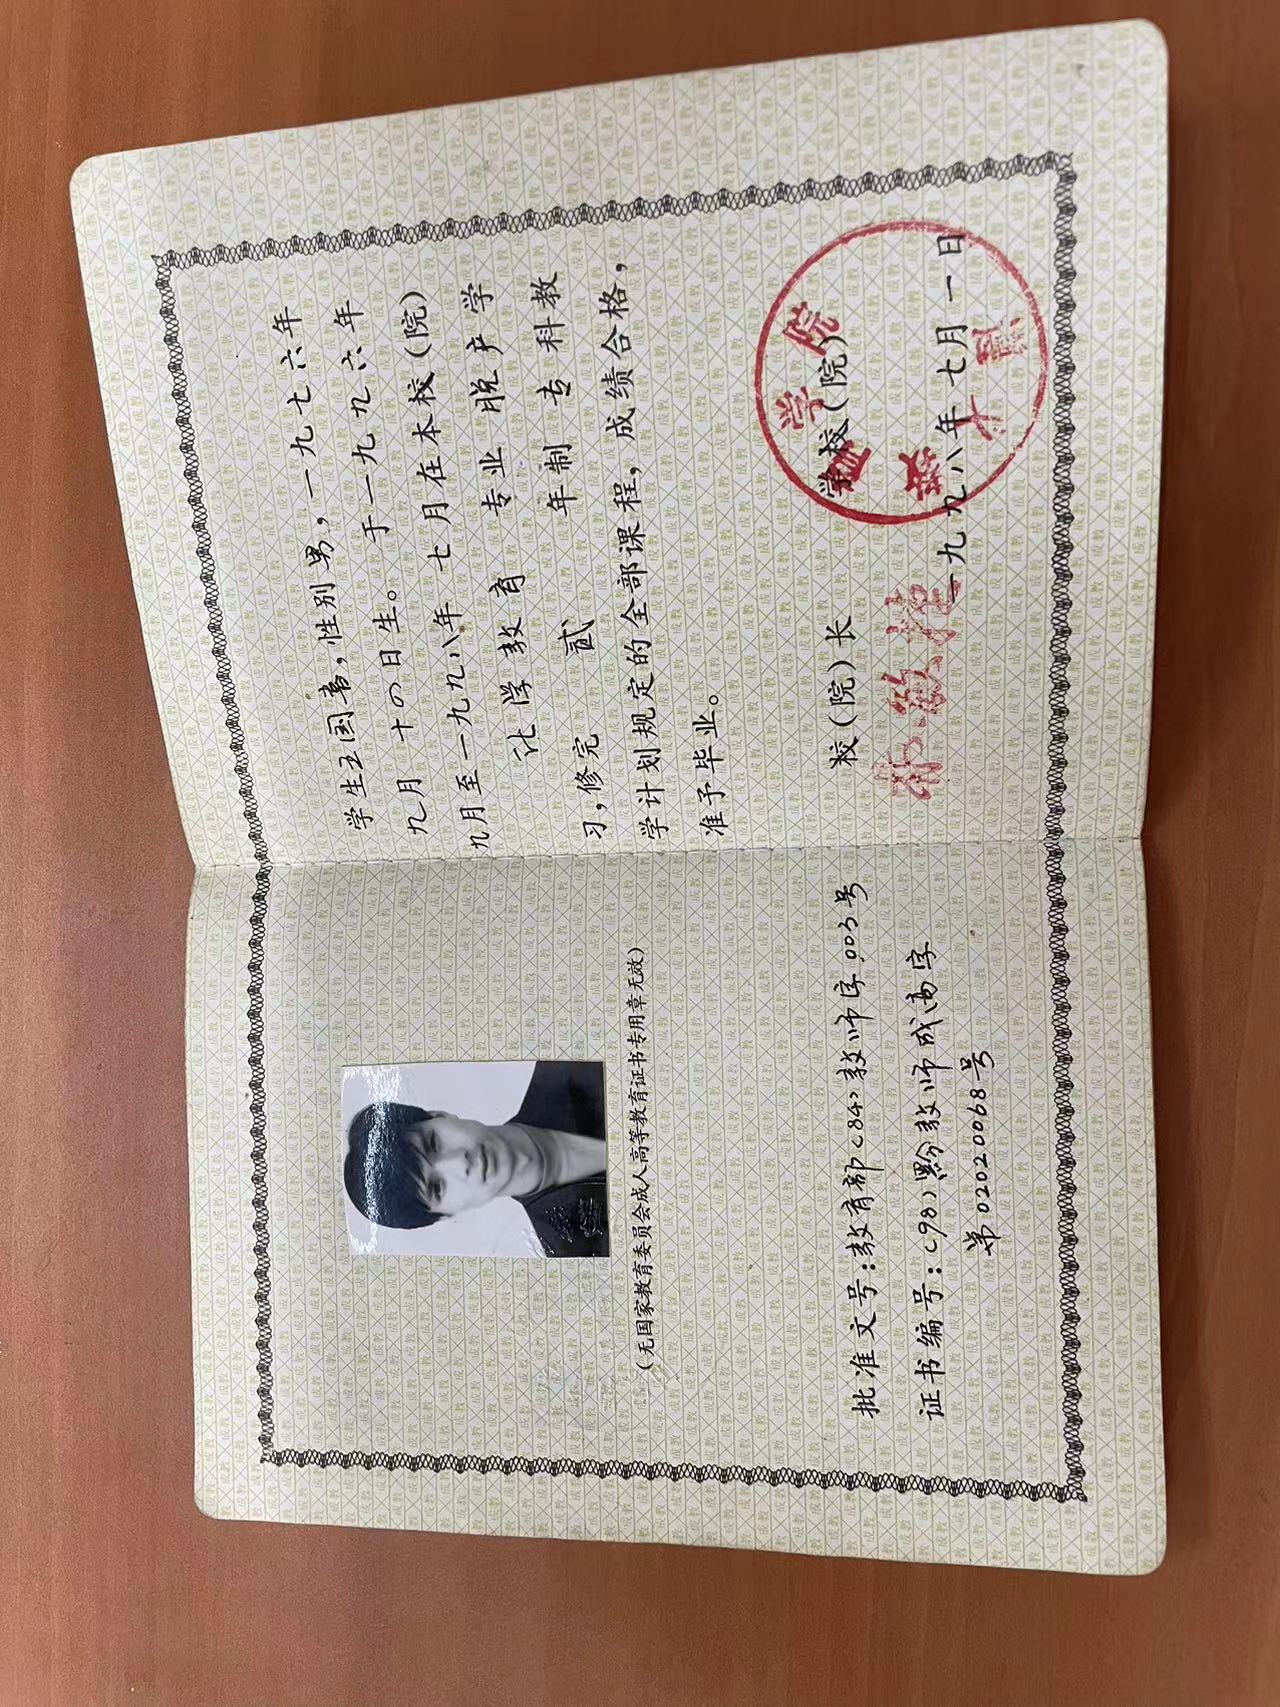 (无国家教育委员会成人高等教育证书专用章无效)
批准文号:教育部(84)教师字003号
证书编号:(98)黔教师成高字
第02020068号
学生王国喜,性别男,一九七六年
九月 十四日生。 于一九九六年
九月至一九九八年 七月在本校(院)
化学教育 专业 脱产学
习,修完 贰 年制 专科教
学计划规定的全部课程,成绩合格,
准予毕业。
校(院)长 学校(院)
一九九八年七月一日